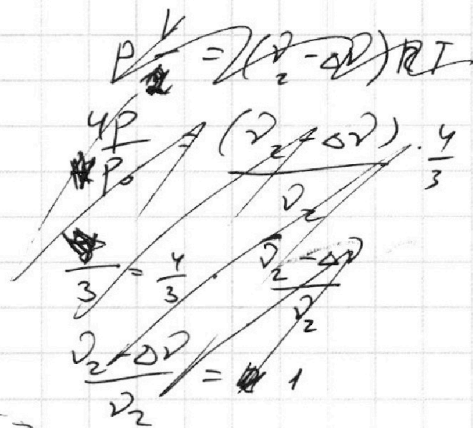 P V/2 = 2(ν₂ - Δν) R T
4P/P₀ = (ν₂ - Δν)/ν₂ · 4/3
/3 = 4/3 · (ν₂ - Δν)/ν₂
(ν₂ - Δν)/ν₂ = 1